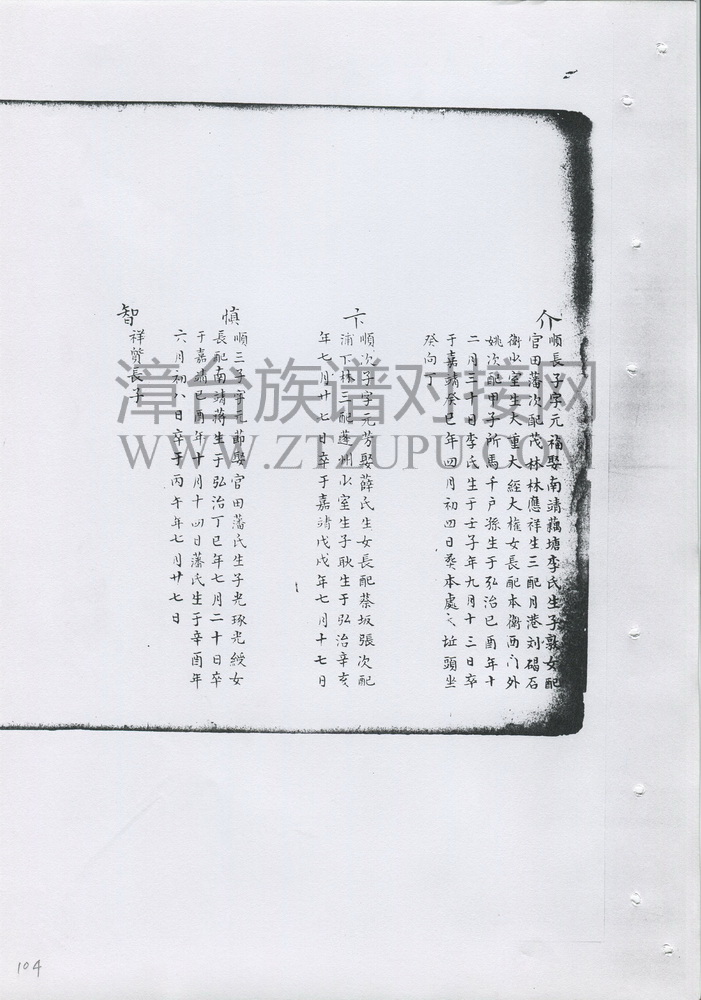 介
順長子字元福娶南靖藕塘李氏生子敦女配
官田藩次配茂林林應祥生三配月港刘碣石
衛小室生大重大經大权女長配本衛西门外
姚次配甲子所馬千户孫生于弘治已酉年十
二月三十日李氏生于壬子年九月十三日卒
于嘉靖癸巳年四月初四日葵本處 址頭坐
癸向丁
卞
順次子字元芳娶薛氏生女長配蔡坂張次配
浦下林三配蓬州小室生子耿生于弘治辛亥
年七月廿七日卒于嘉靖戊戌年七月十七日
慎
順三子字元節娶官田藩氏生子光琢光綬女
長配南靖蒋生于弘治丁巳年七月二十日卒
于嘉靖已酉年十月十四日藩氏生于辛酉年
六月初八日卒于丙午年七月廿七日
智
祥贤長子
漳台族谱对接网
WWW.ZTZUPU.COM
104